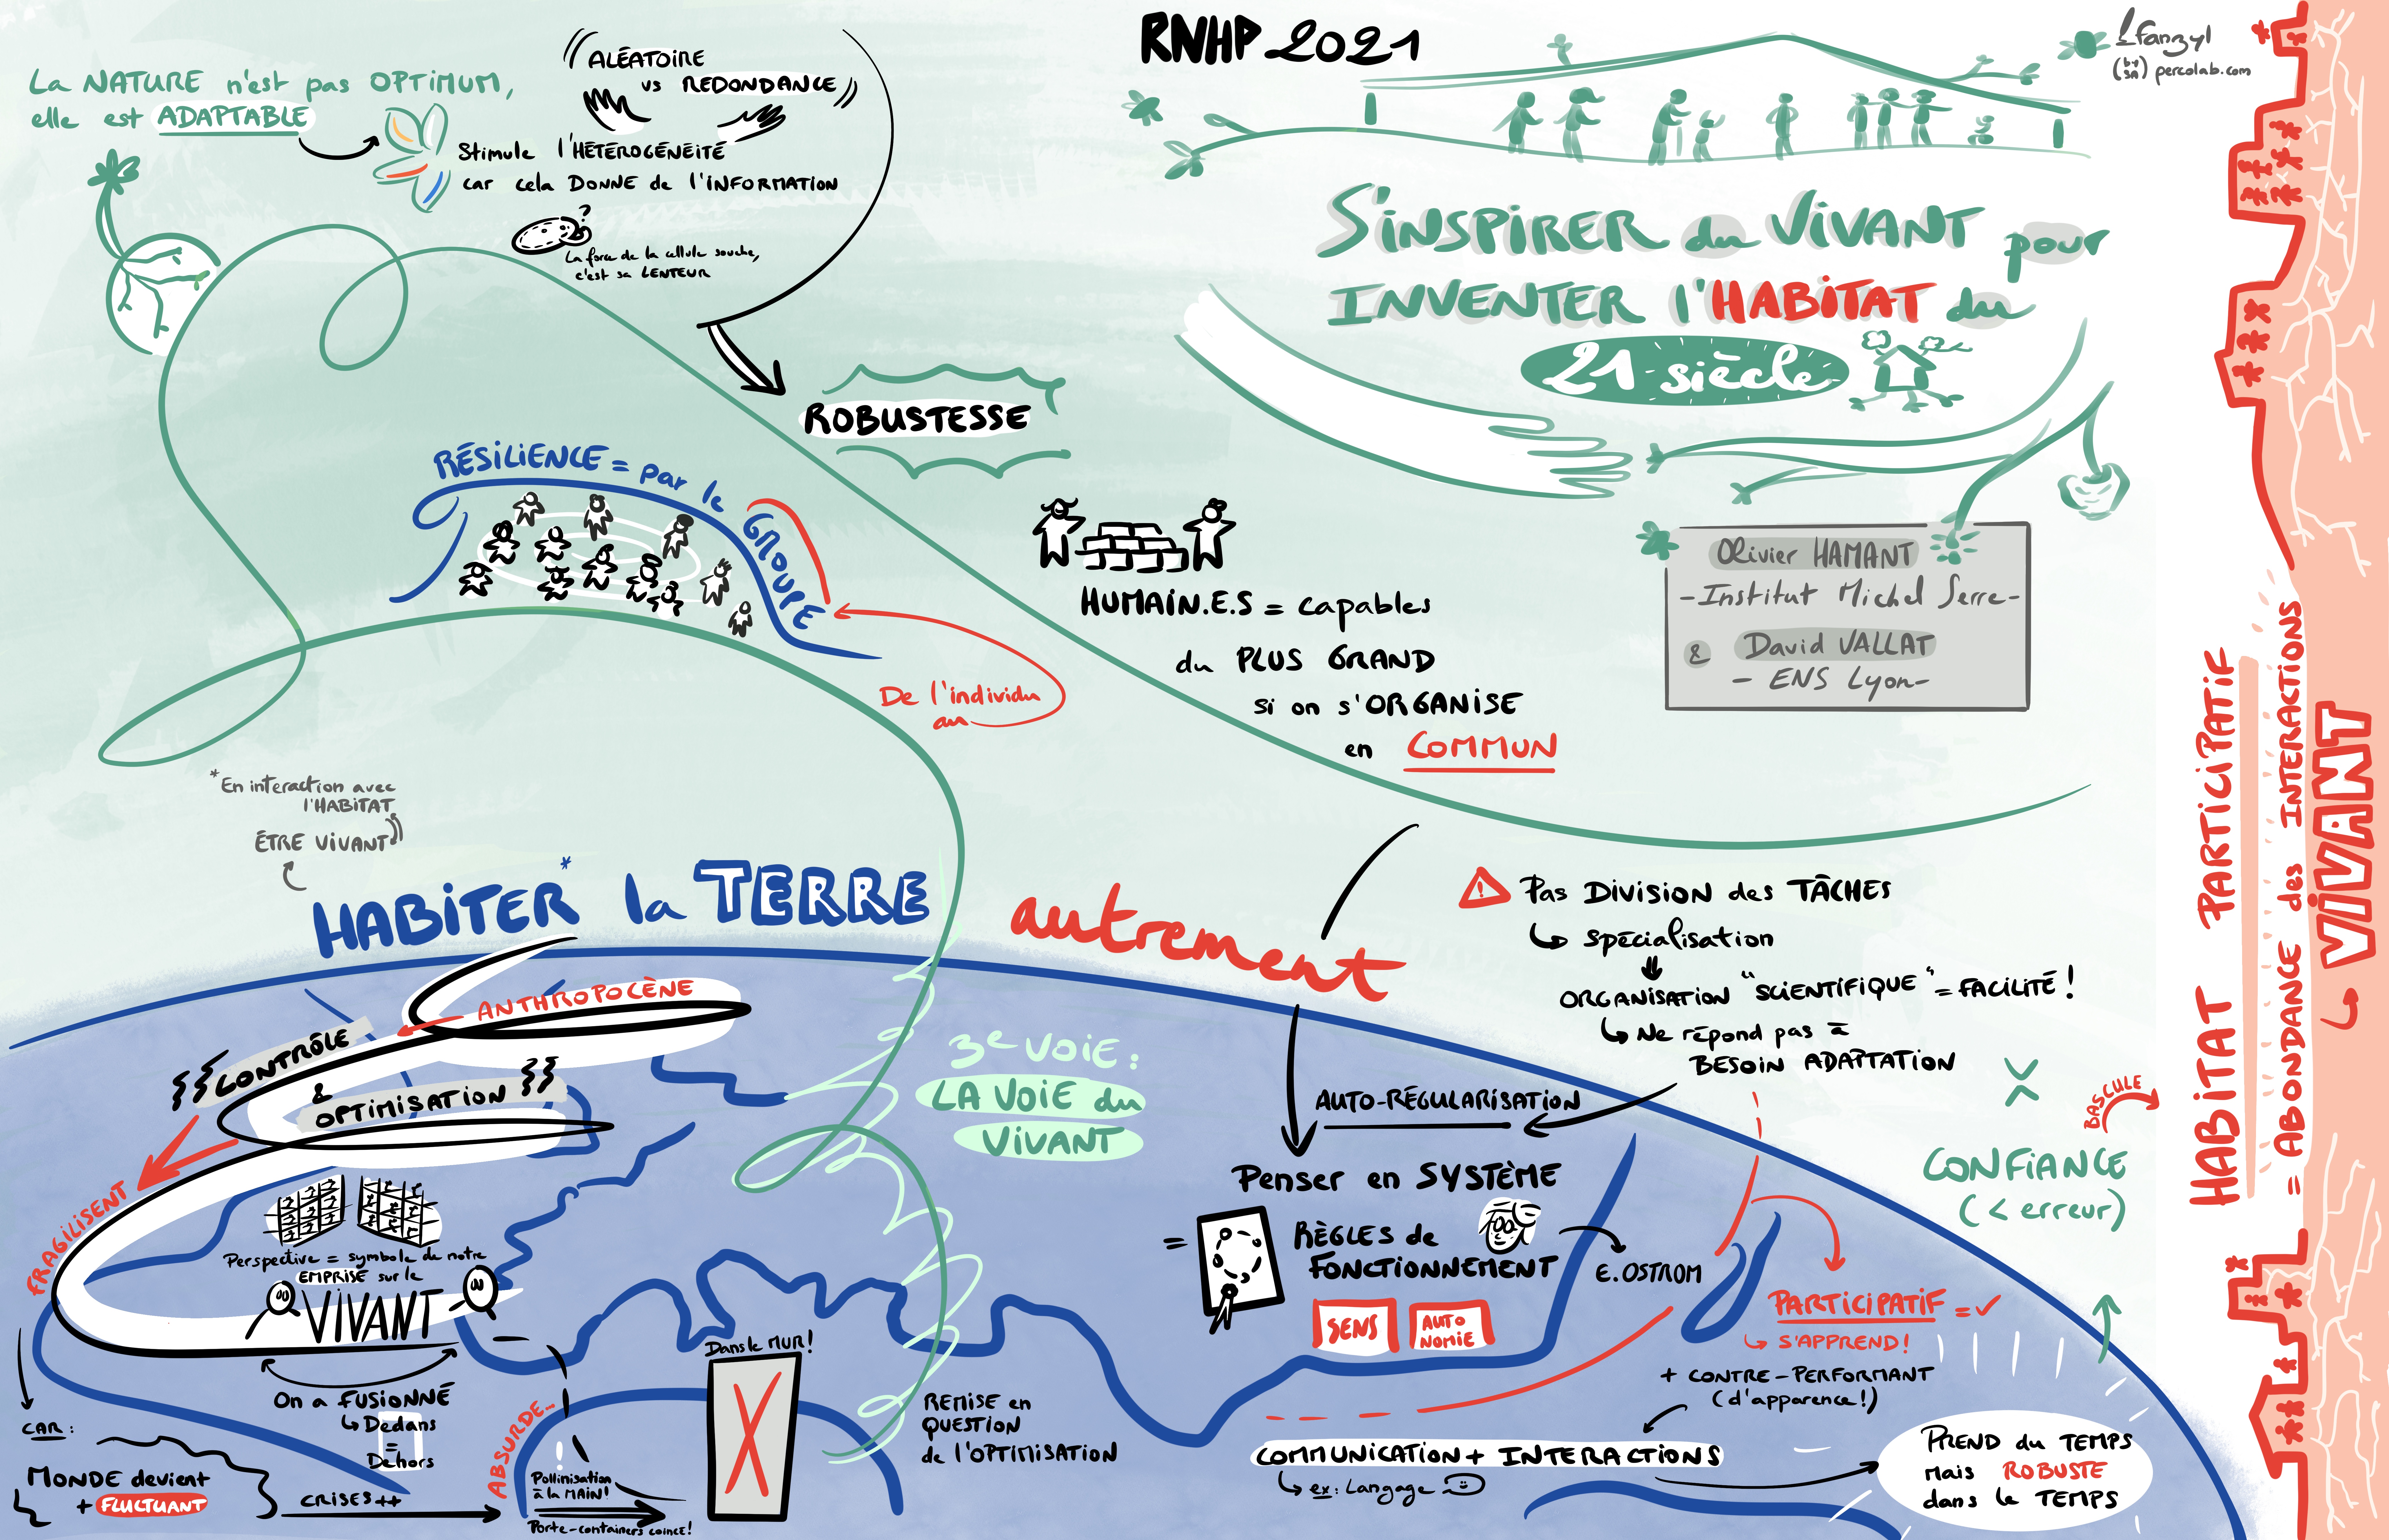 RNHP 2021
fanzyl
(by sa) percolab.com
S'INSPIRER du VIVANT pour
INVENTER l'HABITAT du
21 siècle
Olivier HAMANT
-Institut Michel Serre-
& David VALLAT
- ENS Lyon-
La NATURE n'est pas OPTIMUM,
elle est ADAPTABLE
ALÉATOIRE
vs REDONDANCE
Stimule l'HÉTÉROGÉNEITÉ
car cela DONNE de l'INFORMATION
?
La force de la cellule souche,
c'est sa LENTEUR
ROBUSTESSE
RÉSILIENCE = par le GROUPE
De l'individu
au
HUMAIN.E.S = capables
du PLUS GRAND
si on s'ORGANISE
en COMMUN
*En interaction avec
l'HABITAT
ÊTRE VIVANT
HABITER* la TERRE autrement
ANTHROPOCÈNE
CONTRÔLE
&
OPTIMISATION
FRAGILISENT
Perspective = symbole de notre
EMPRISE sur le
VIVANT
On a FUSIONNÉ
Dedans
=
Dehors
CAR :
MONDE devient
+ FLUCTUANT
CRISES ++
ABSURDE_
!
Pollinisation
à la MAIN!
Porte-containers coincé!
Dans le MUR!
3e VOIE :
LA VOIE du
VIVANT
REMISE en
QUESTION
de l'OPTIMISATION
⚠ Pas DIVISION des TÂCHES
↳ spécialisation
ORGANISATION "SCIENTIFIQUE" = FACILITÉ !
↳ Ne répond pas à
BESOIN ADAPTATION
AUTO-RÉGULARISATION
Penser en SYSTÈME
= RÈGLES de
FONCTIONNEMENT
E. OSTROM
SENS
AUTO
NOMIE
PARTICIPATIF = ✓
↳ S'APPREND!
+ CONTRE-PERFORMANT
(d'apparence!)
COMMUNICATION + INTERACTIONS
↳ ex: Langage
PREND du TEMPS
mais ROBUSTE
dans le TEMPS
CONFIANCE
(< erreur)
BASCULE
HABITAT PARTICIPATIF
= ABONDANCE des INTERACTIONS
↳ VIVANT